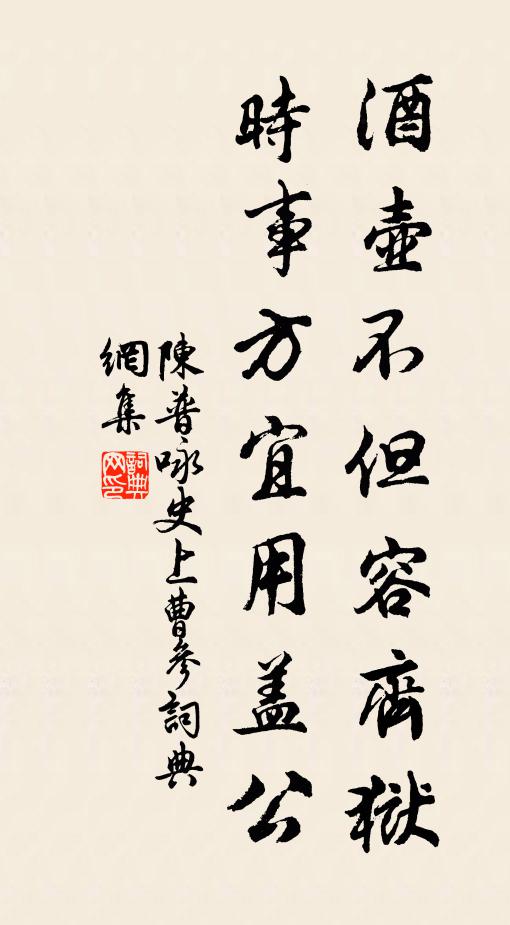 酒壺不但容齊獄
時事方宜用盖公
陳普咏史上曹參詞典
網集
詞典網印